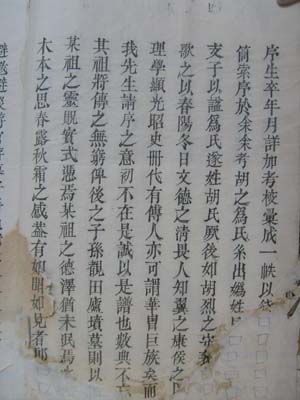 序生卒年月詳加考核彙成一帙以
簡索序於余余考胡之爲氏系出媯姓
支子以謚爲氏遂姓胡氏厥後如胡烈之守
歌之以春陽冬日文德之清畏人知翼之康侯之
理學顯光昭史冊代有傳人亦可謂華胄巨族矣而
我先生請序之意初不在是誠以是譜也數典不忘
其祖將傳之無窮俾後之子孫覩田廬墳墓則以
某祖之靈貺實式憑焉某祖之德澤猶未泯焉
木本之思春露秋霜之感蓋有如聞如見者耶